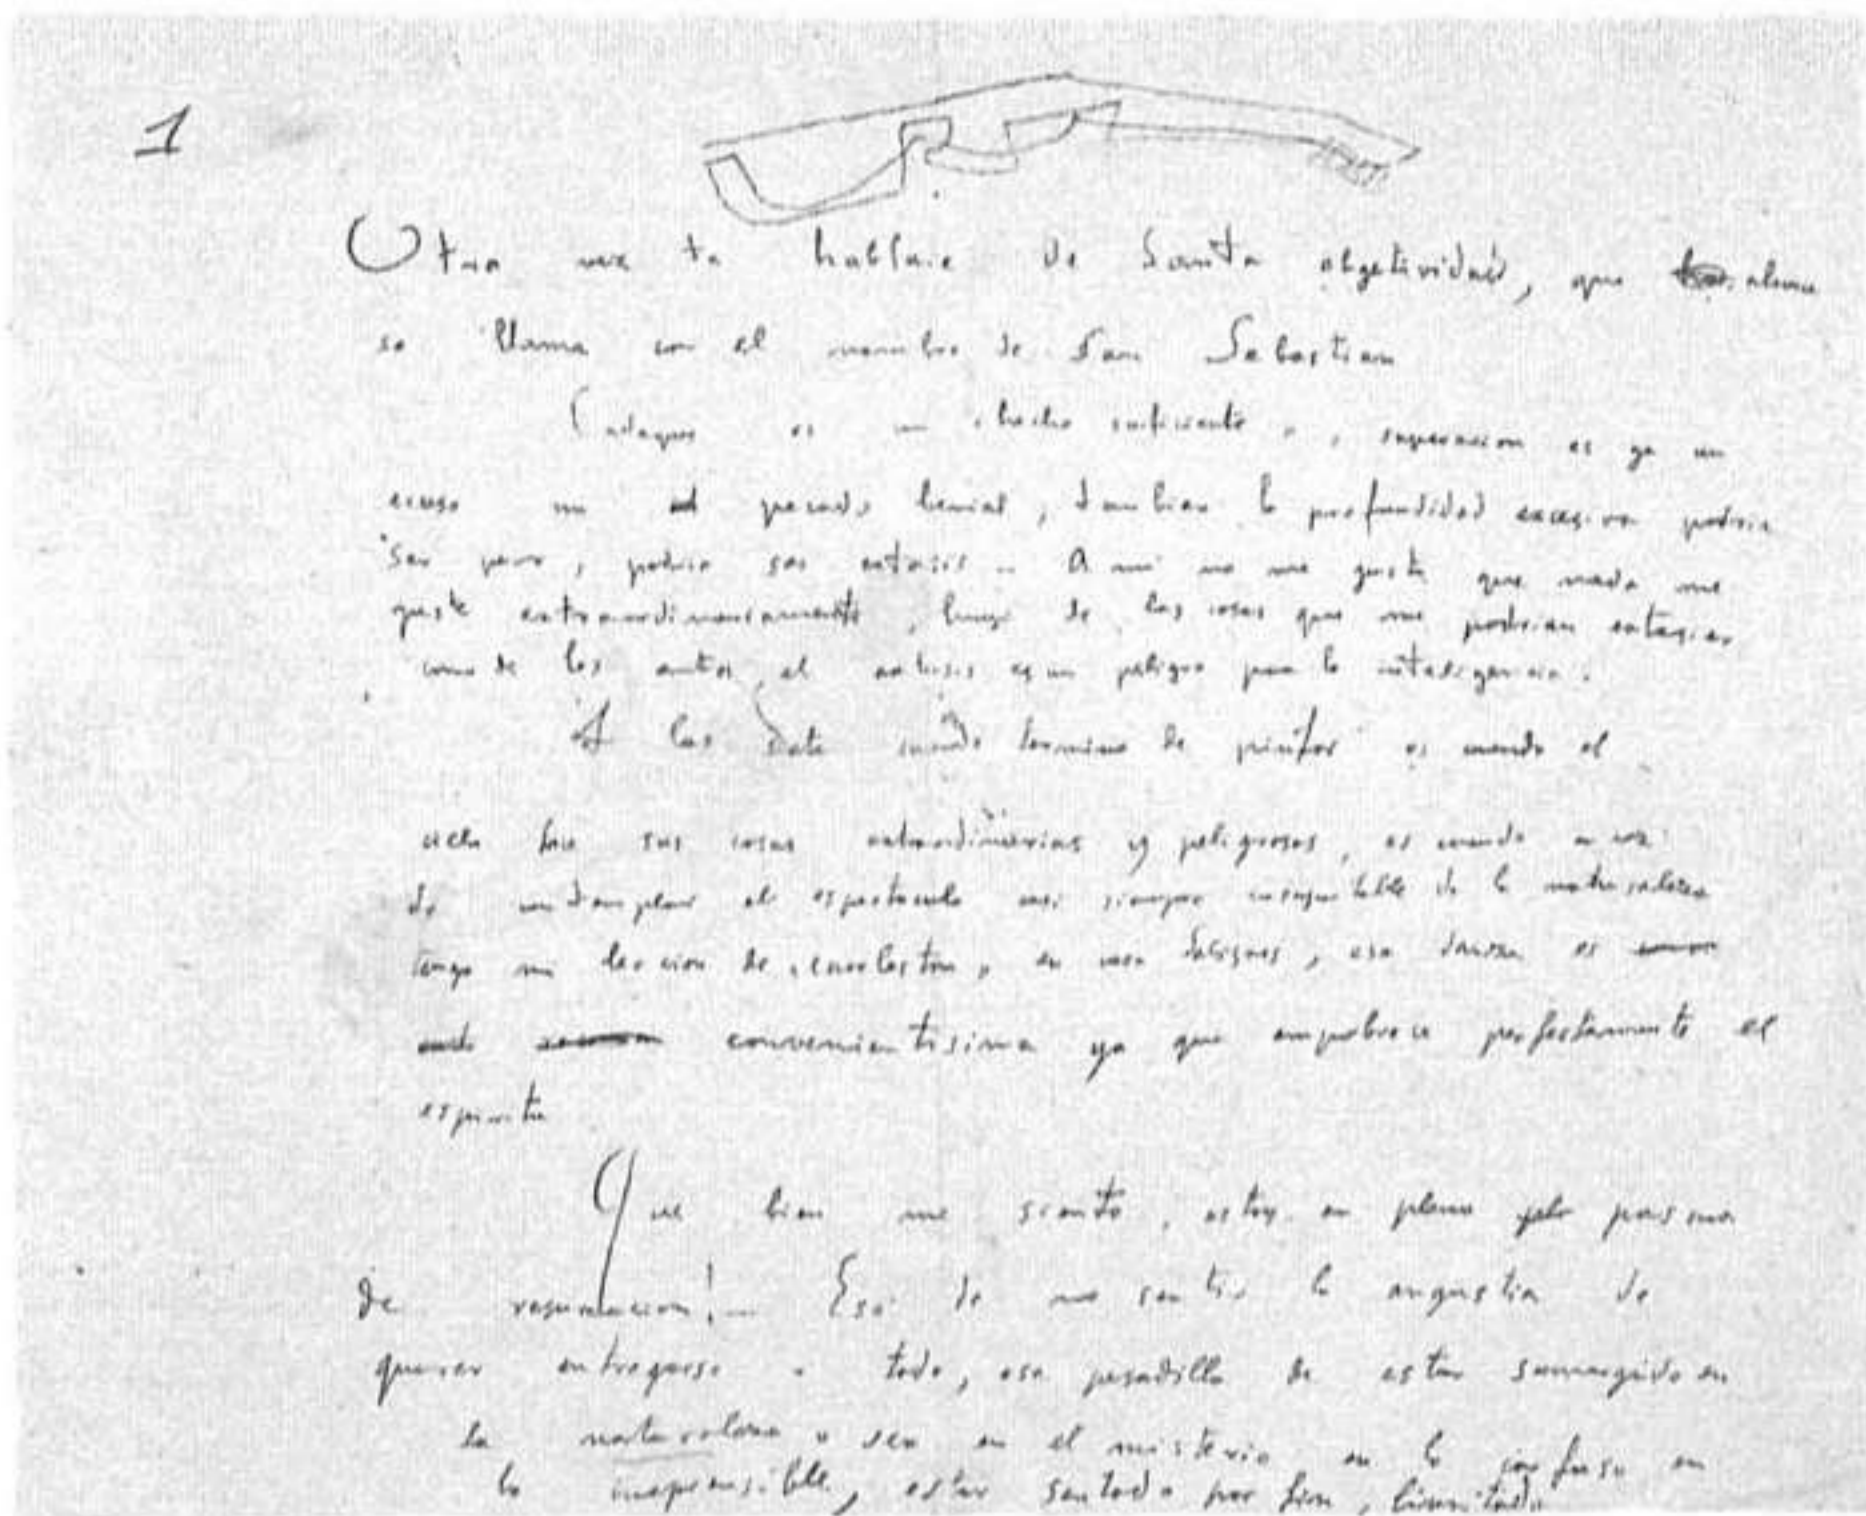 1
Otra vez te hablare de Santa objetividad, que ahora
se llama con el nombre de San Sebastian
Cadaques es un hecho suficiente, superacion es ya un
eceso un pecado benial, tambien la profundidad excesiva podria
ser peor, podria ser extasis — A mi no me gusta que nada me
guste extraordinariamente, huyo de las cosas que me podrian extasiar
como de los autos, el extasis es un peligro para la inteligencia.
A las siete cuando termino de pintar es cuando el
cielo hace sus cosas extraordinarias y peligrosas, es cuando en vez
de contemplar el espectaculo casi siempre insoportable de la naturaleza
tengo mi leccion de charleston, en casa Salisacs, esa danza es
convenientisima ya que empobrece perfectamente el
espiritu
Que bien me siento, estoy en plena pascua
de resurreccion! — Eso de no sentir la angustia de
querer entregarse a todo, esa pesadilla de estar sumergido en
la naturaleza o sea en el misterio en lo confuso en
lo inaprensible, estar sentado por fin, limitado